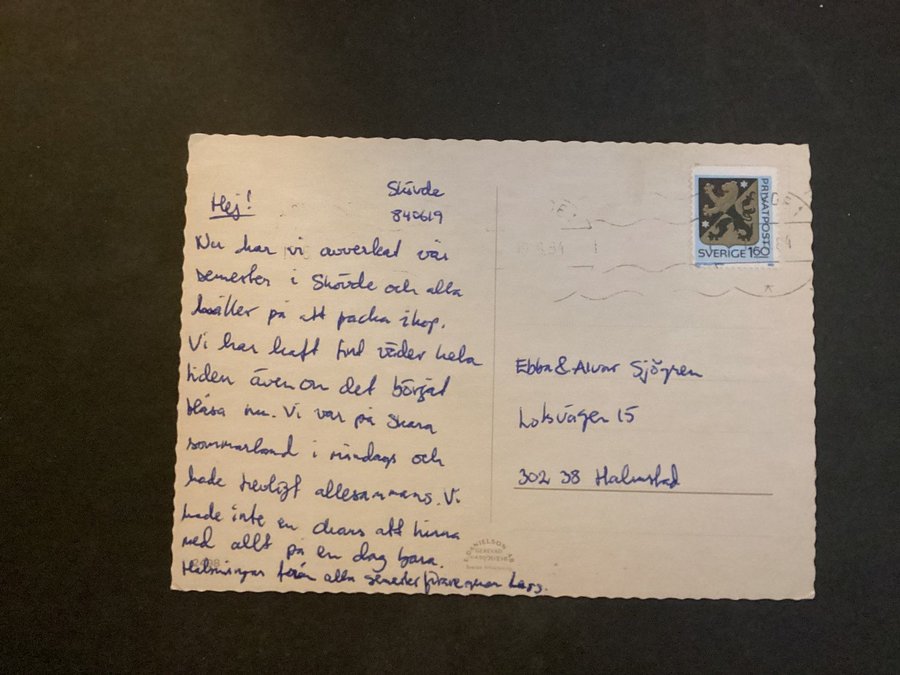 Skövde
840619
Hej!
Nu har vi avverkat vår
semester i Skövde och alla
håller på att packa ihop.
Vi har haft fint väder hela
tiden även om det börjat
blåsa nu. Vi var på Skara
sommarland i måndags och
hade trevligt allesammans. Vi
hade inte en chans att hinna
med allt på en dag bara.
Hälsningar från alla semesterfirare
PRIVATPOST
SVERIGE 160
Ebba & Alvar Sjögren
Loksvägen 15
302 38 Halmstad
DANIELSON